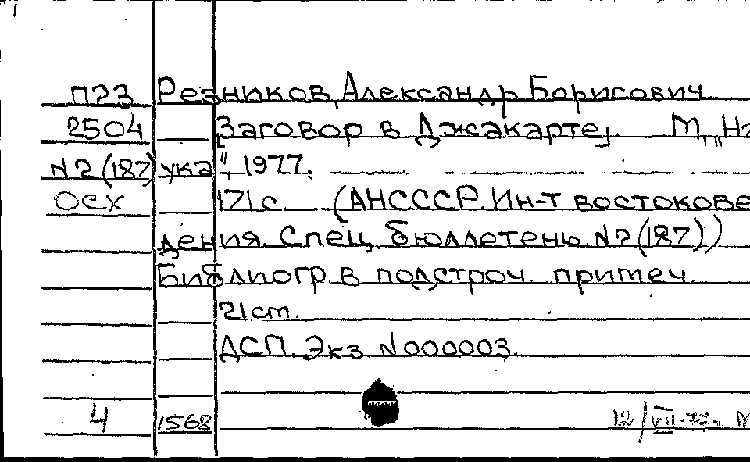 П23 Резников, Александр Борисович
2504 Заговор в Джакарте. М., "На
N2(187) ука", 1977.
ОСХ 171с. (АНСССР. Ин-т востокове
дения. Спец. бюллетень N2(187))
Библиогр. в подстроч. примеч.
21 ст.
ДСП. Экз N000003.
4 1568 12/VII